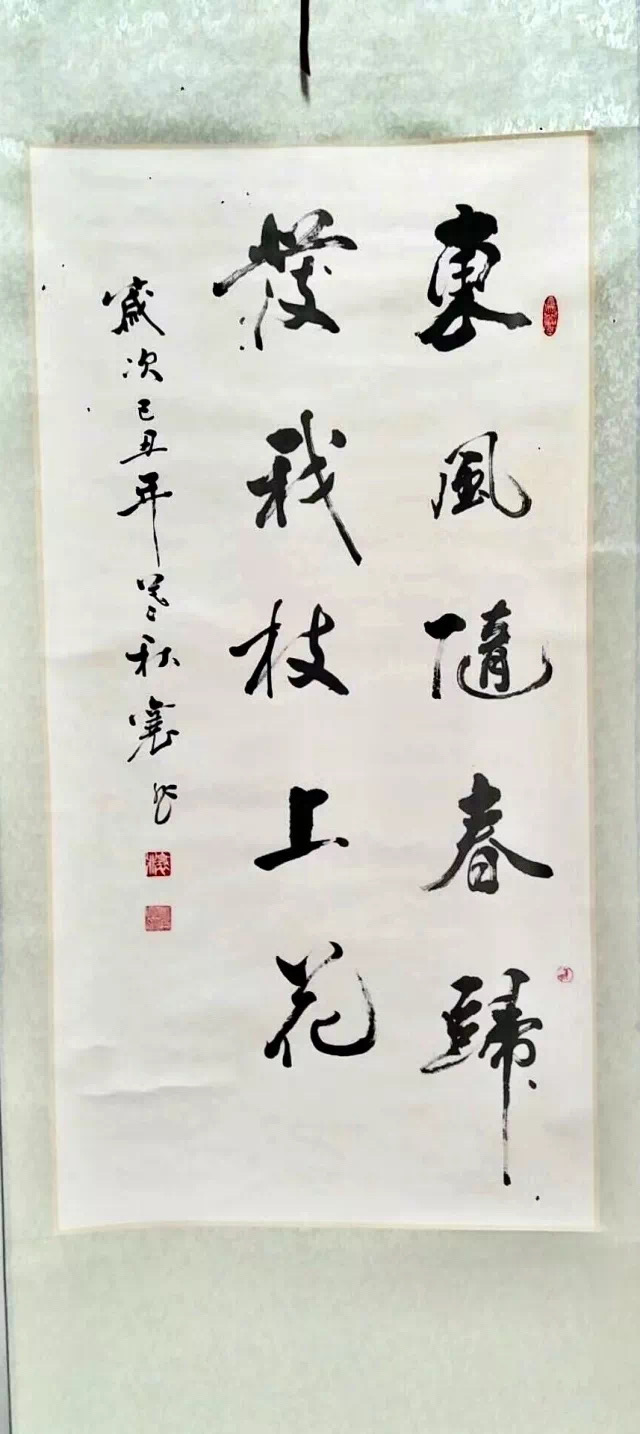 東風隨春歸
發我枝上花
歲次己丑年 秋